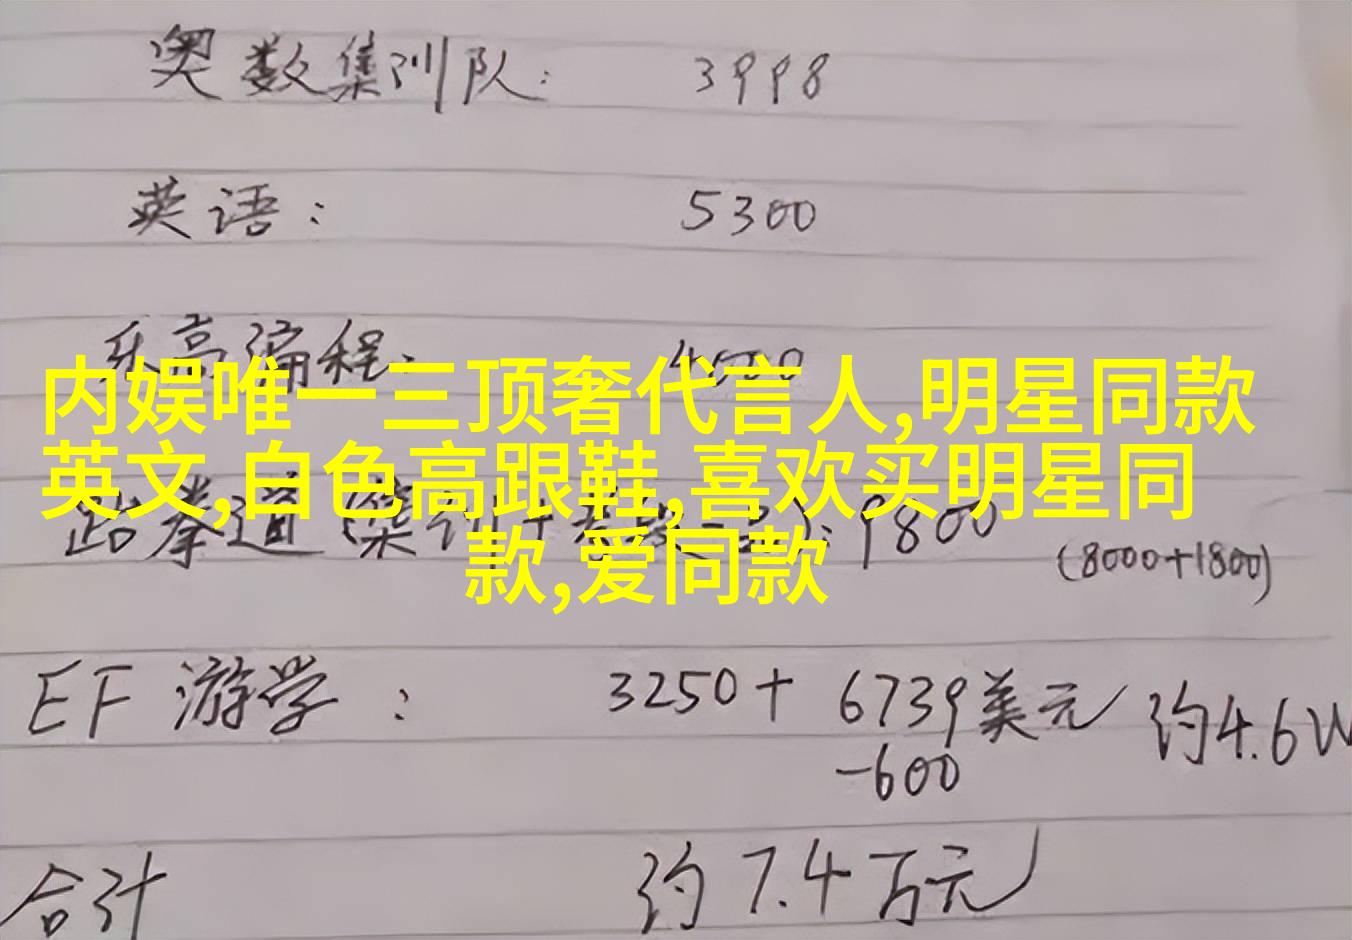 奥数集训队: 3998
英语: 5300
乐高编程: 4500
内娱唯一三顶奢代言人,明星同款
英文,白色高跟鞋,喜欢买明星同
款,爱同款
跆拳道(集训+考段二品): 9800
(8000+1800)
EF 游学: 3250+ 6739美元 约4.6W
-600
合计 约7.4万元